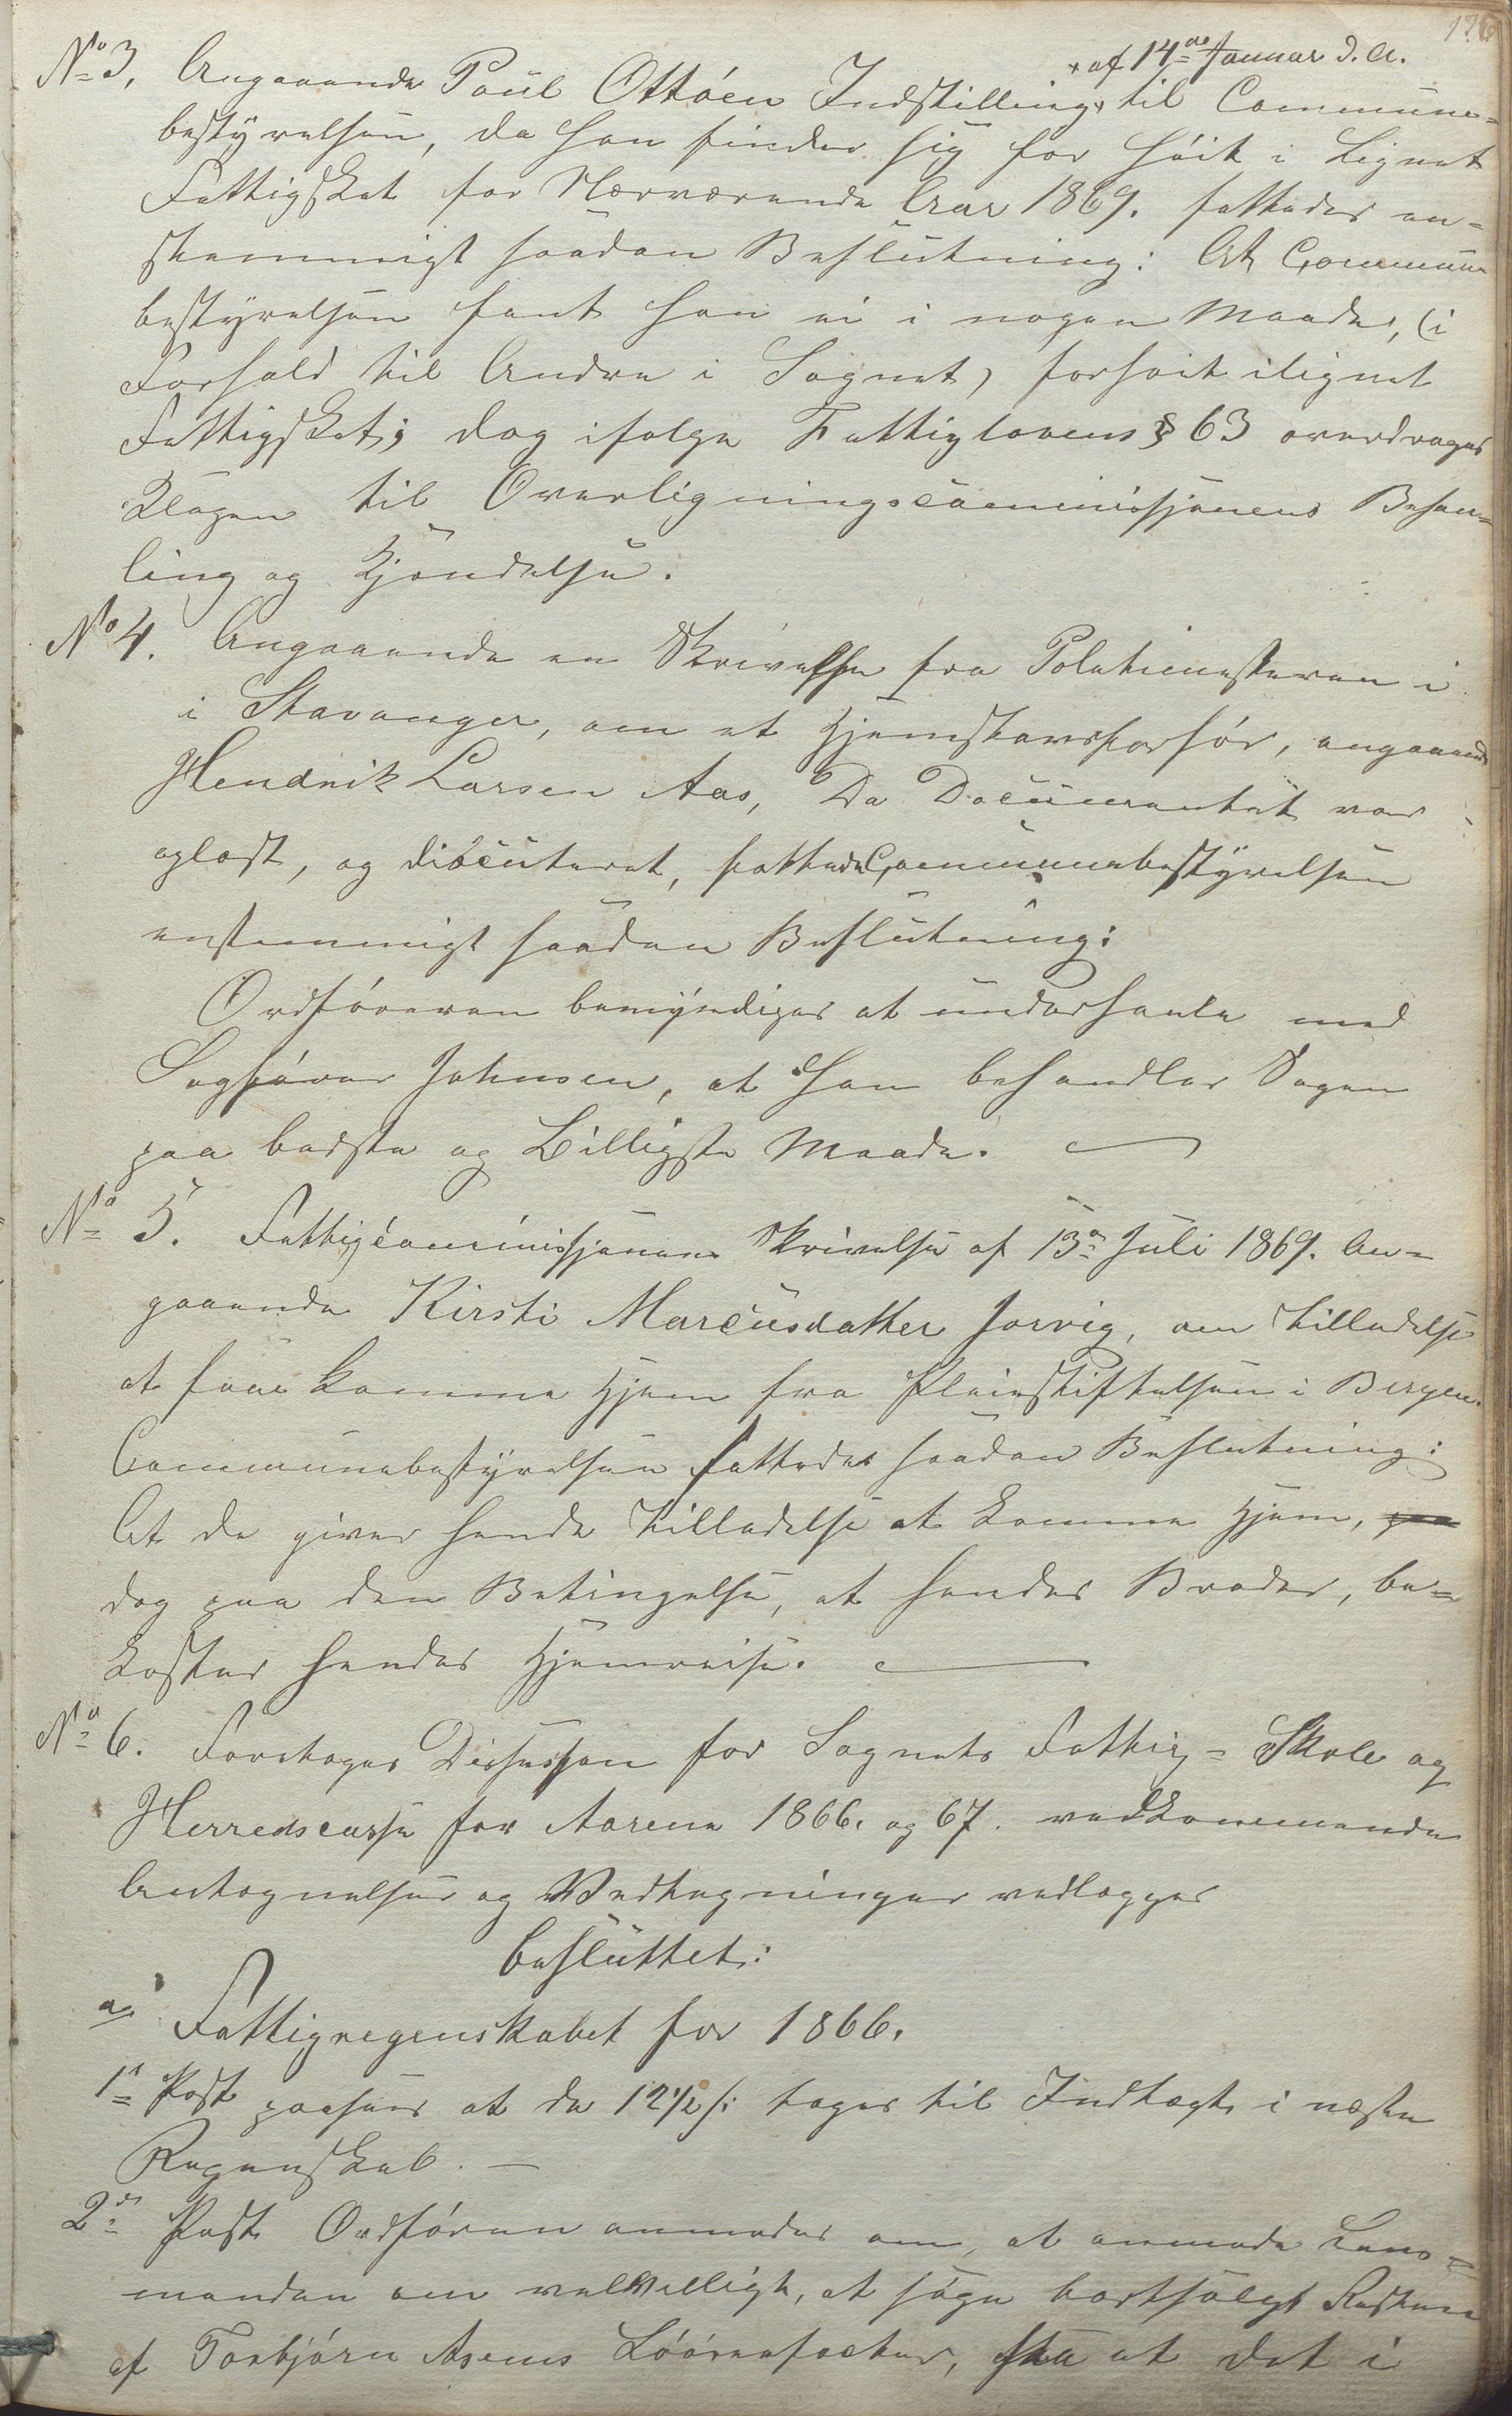 + af 14de Januar d. A.
No 3, Angaaende Poul Ottöen Indstilling + til Commune-
bestyrelsen, da han finder sig for höit i Lignet
Fattigskat for Nærværende Aar 1869. fattedes en-
stemmigt saadan Beslutning: At Commune
bestyrelsen fant han ei i nogen Maade, (i
Forhold til Andre i Sognet) forhöit ilignet
Fattigskat; dog ifølge Fattiglovens § 63 overdrages
Klagen til Overligningscommissjonens Behan-
ling og Kjendelse.
No 4. Angaaende en Skrivelse fra Politimesteren i
i Stavanger, om et Hjemstavnsforhör, angaaende
Hendrik Larsen Aas, Da Documentet var
oplæst, og discuteret, fattede Communebestyrelsen
enstemmigt saadan Beslutning:
Ordföreren bemyndiges at underhanle med
Sagförer Johnsen, at Han behandler Sagen
paa bedste og Billigste Maade.
No 5. Fattigcommissjonens Skrivelse af 13de Juli 1869. An-
gaaende Kirsti Marcusdatter Jorvig, om Tilladelse
at faae komme Hjem fra Pleiestiftelsen i Bergen.
Communebestyrelsen fattedes saadan Beslutning:
At de giver hende Tilladelse at komme Hjem, paa
dog paa den Betingelse, at hendes Broder, be-
koster hendes Hjemreise.
No 6. Foretoges Decision for Sognets Fattig- Skole og
Herredscasse for Aarene 1866. og 67. vedkommende
Antegnelser og Vedtegninger vedlægges
besluttet:
a, Fattigregenskabet for 1866.
1st Post paasees at de 12 1/2 s: tages til Indtægt i næste
Regenskab. —
2de Post Ordföreren anmodes om, at anmode Lens-
manden om velvilligt, at söge bortsolgt Resten
af Torbjörn Asens Löörefactur, saa at det i